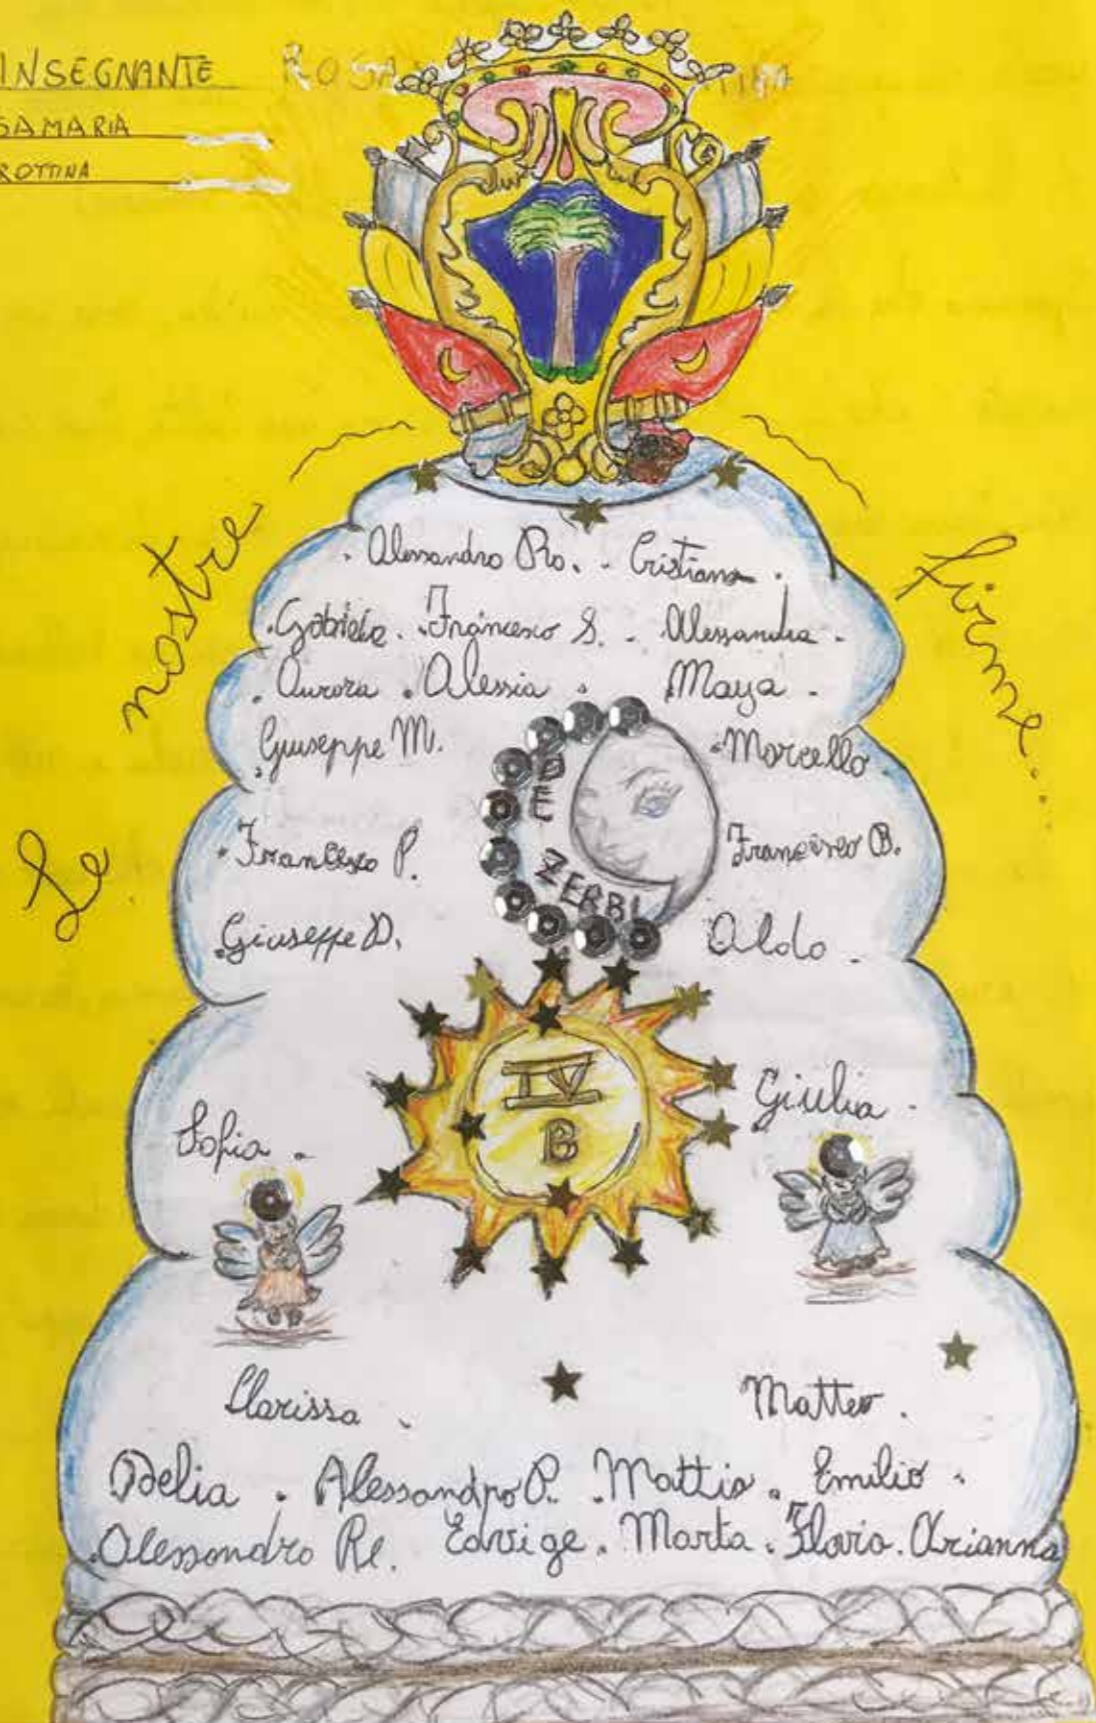 INSEGNANTE
SAMARIA
ROTTINA
Le nostre firme...
. Alessandro Ro. . Cristiano .
. Gabriele . . Francesco S. . Alessandra .
. Aurora . Alessia . Maya .
. Giuseppe M. . Marcello .
DE ZERBI
. Francesco P. Francesco B.
. Giuseppe D. Aldo .
IV
B
Sofia . Giulia .
Clarissa . Matteo .
Delia . Alessandro P. . Mattia . Emilio .
. Alessandro Re. Edvige . Marta . Flavio . Arianna